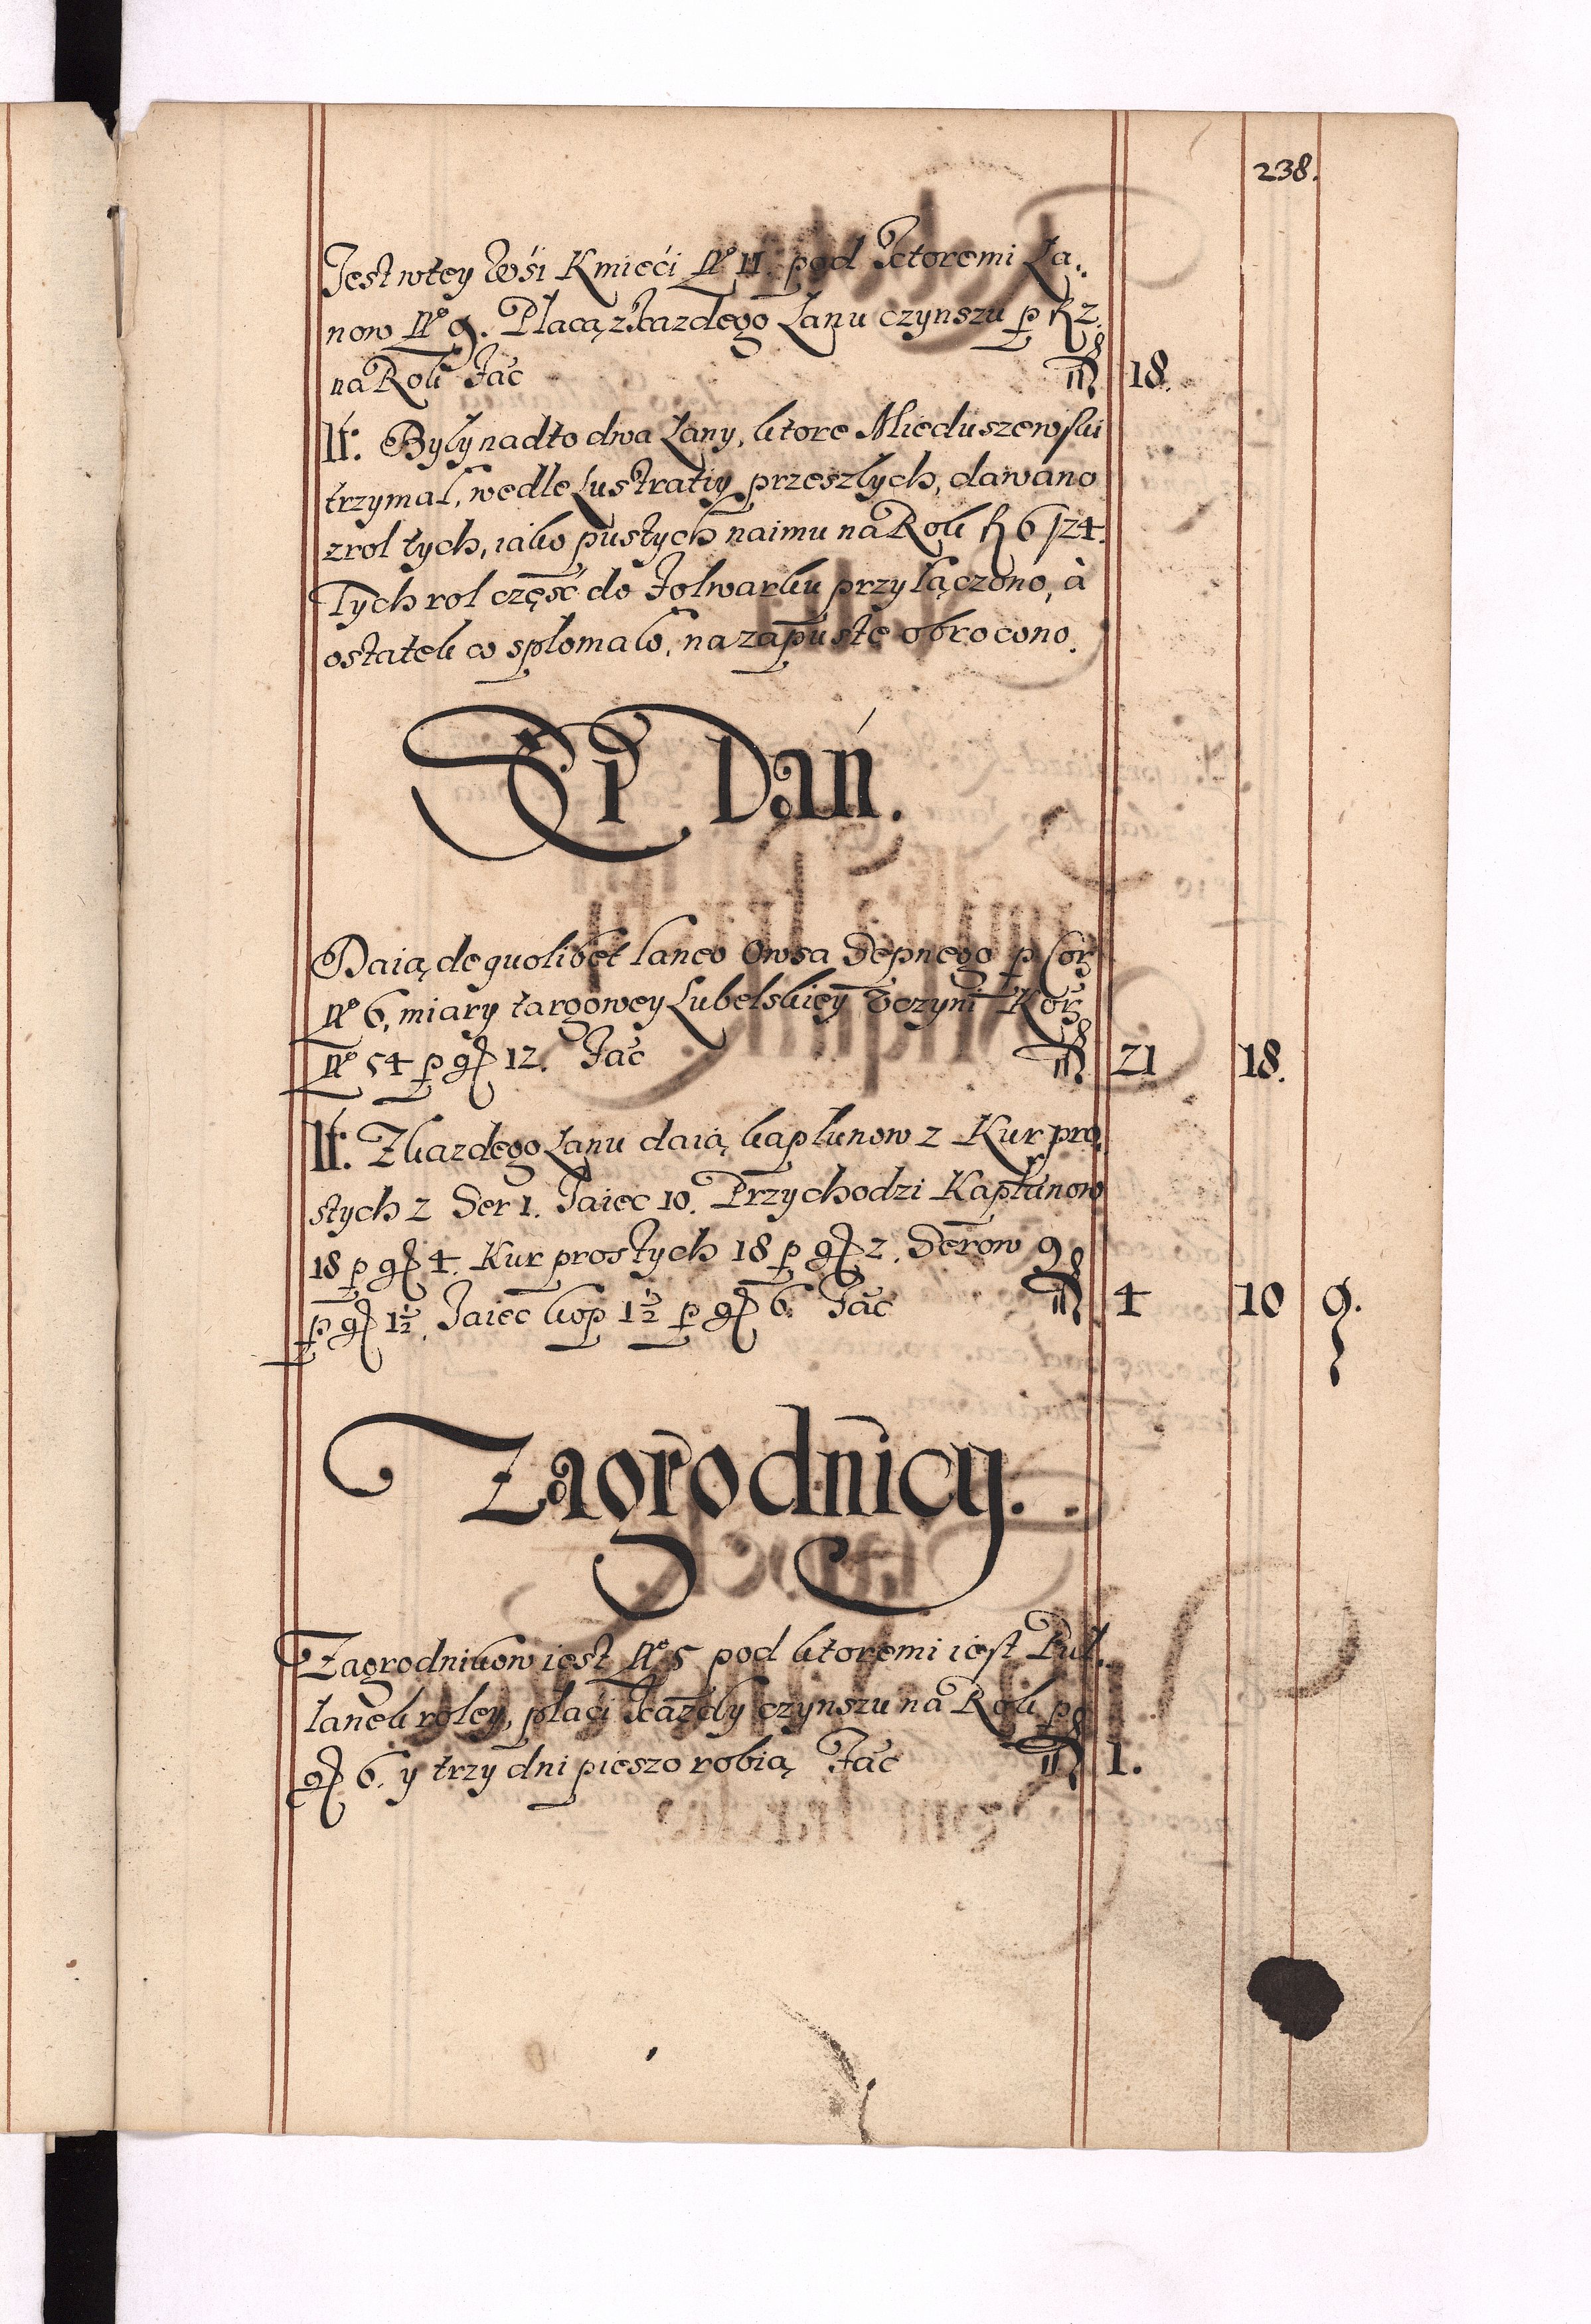 238.
Jest wtey Wsi Kmieci No 11. pod Ktoremi Ła„
now No 9. Płacą z Kazdego Łanu czynszu p fl 2.
na Rok Fac fl 18.
It: Były nadto dwa Łany, ktore Mieduszewski
trzymał, wedle Lustratiy przeszłych, dawano
z rol tych, iako pustych naimu na Rok fl 6/24.
Tych rol część do Folwarku przyłączono, à
ostatek co spłomało, na zapuste obrocono.
Ti Dań.
Daią de quolibet laneo Owsa Sepnego p Cor
No 6, miary targowey Lubelskiey Vczyni Kor
No 54 p gr 12. Fac fl 21 18.
It: Z kazdego Łanu daią kapłunow 2 Kur pro„
stych 2 Ser 1. Jaiec 10. Przychodzi Kapłunow
18 p gr 4. Kur prostych 18 p gr 2. Serow 9
p gr 1½. Jaiec kop 1½ p gr 6. Fac fl 4 10 9.
Zagrodnicy.
Zagrodnikow iest No 5 pod ktoremi iest Puł„
łanek roley, płaci Kazdy czynszu na Rok po
gr 6. y trzy dni pieszo robią Fac fl 1.